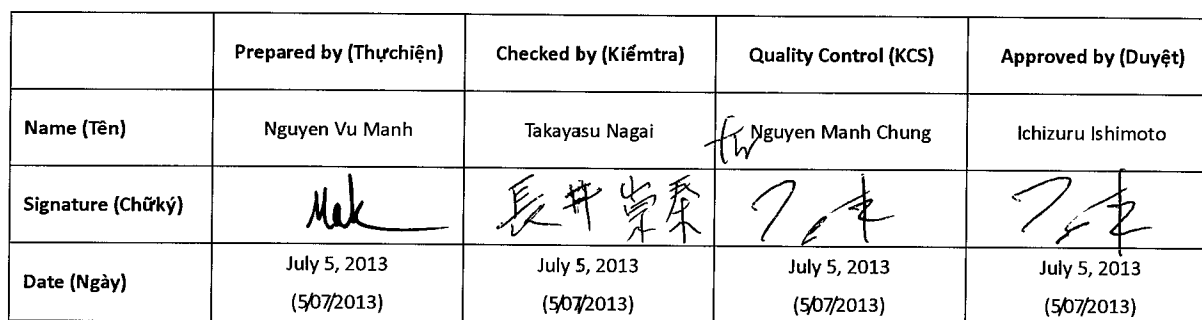 Prepared by (Thựchiện) Checked by (Kiểmtra) Quality Control (KCS) Approved by (Duyệt)
Name (Tên) Nguyen Vu Manh Takayasu Nagai for Nguyen Manh Chung Ichizuru Ishimoto
Signature (Chữký) 長井崇泰
Date (Ngày) July 5, 2013 July 5, 2013 July 5, 2013 July 5, 2013
(5/07/2013) (5/07/2013) (5/07/2013) (5/07/2013)